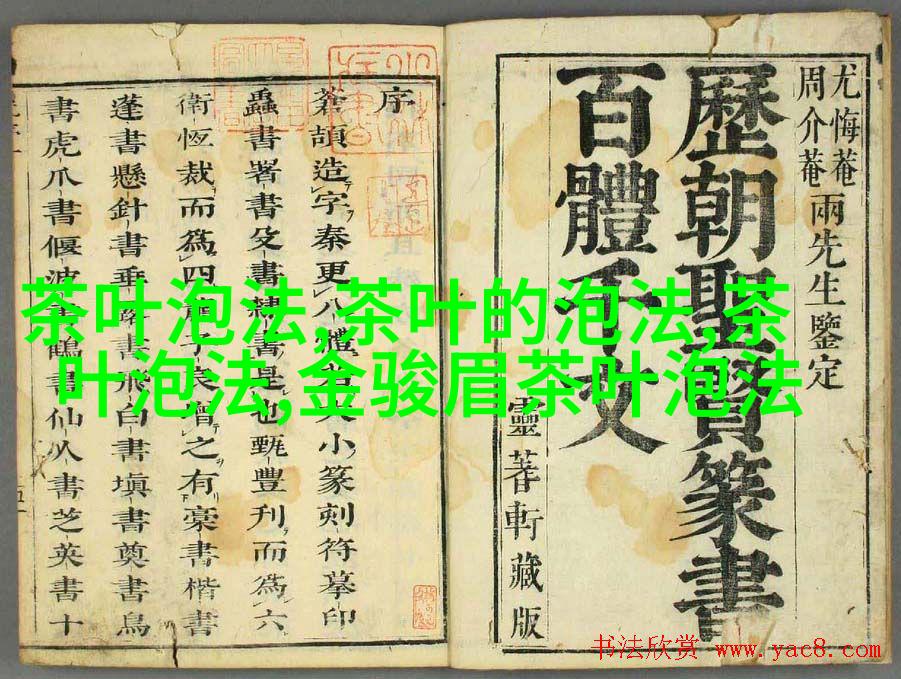 尤悔菴
周介菴
兩先生鑒定
歷朝聖賢篆書
百體千文
靈蓍軒藏版
序
蒼頡造字秦更八體小篆刻符摹印
蟲書署書殳書隸書是也甄豐刋而爲六
衛恆裁而爲四之有槀書楷書
蓬書懸針書垂露書飛白書塡書奠書鳥
書虎爪書偃波書鶴書仙人書芝英書十
茶叶泡法,茶叶的泡法,茶
叶泡法,金骏眉茶叶泡法
书法欣赏 www.yac8.com